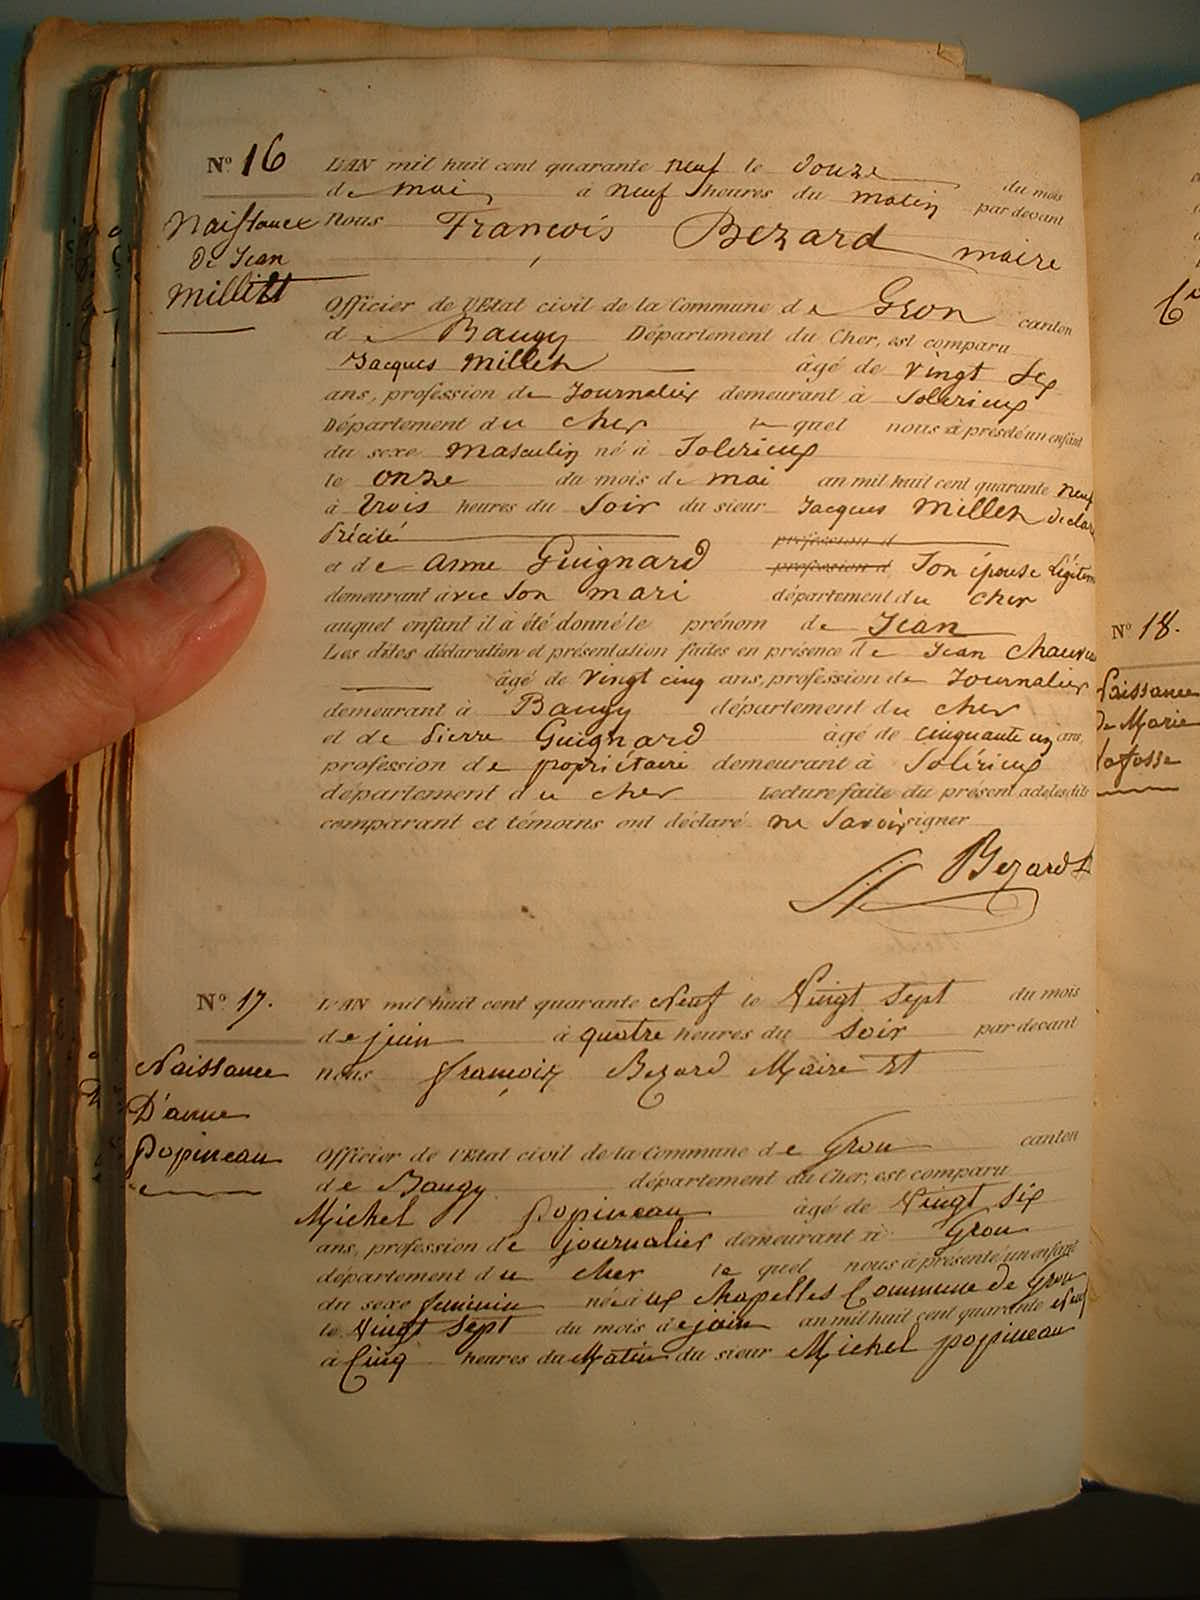 N.º 16
Naissance
de Jean
Millet
L'AN mil huit cent quarante neuf le douze du mois
de mai à neuf heures du matin par devant
nous François Bezard maire
Officier de l'Etat civil de la Commune de Gron canton
de Baugy Département du Cher, est comparu
Jacques Millet âgé de vingt six
ans, profession de Journalier demeurant à Solérieux
Département du cher le quel nous à présédé un enfant
du sexe masculin né à Solérieux
le onze du mois de mai an mil huit cent quarante neuf
à trois heures du Soir du sieur Jacques Millet
Précité profession d
et de Anne Guignard profession d Son épouse Légitime
demeurant avec Son mari département du cher
auquel enfant il à été donné le prénom de Jean
Les dites déclaration et présentation faites en présence de Jean
âgé de vingt cinq ans, profession de Journalier
demeurant à Baugy département du cher
et de Pierre Guignard âgé de cinquante un ans,
profession de propriétaire demeurant à Solérieux
département du cher Lecture faite du présent acte, les dits
comparant et témoins ont déclaré ne Savoir signer
Bezard
N.º 17.
Naissance
D'anne
popineau
L'AN mil huit cent quarante Neuf le Vingt sept du mois
de juin à quatre heures du Soir par devant
nous françois Bezard Maire Et
Officier de l'Etat civil de la Commune de Gron canton
de Baugy département du Cher, est comparu
Michel popineau âgé de Vingt six
ans, profession de journalier demeurant à Gron
département du cher le quel nous à présenté un enfant
du sexe feminin née à ux Chapelles Commune de Gron
le Vingt sept du mois de juin an mil huit cent quarante Neuf
à Cinq heures du Matin du sieur Michel popineau
N.º 18.
Naissance
De Marie
lafosse